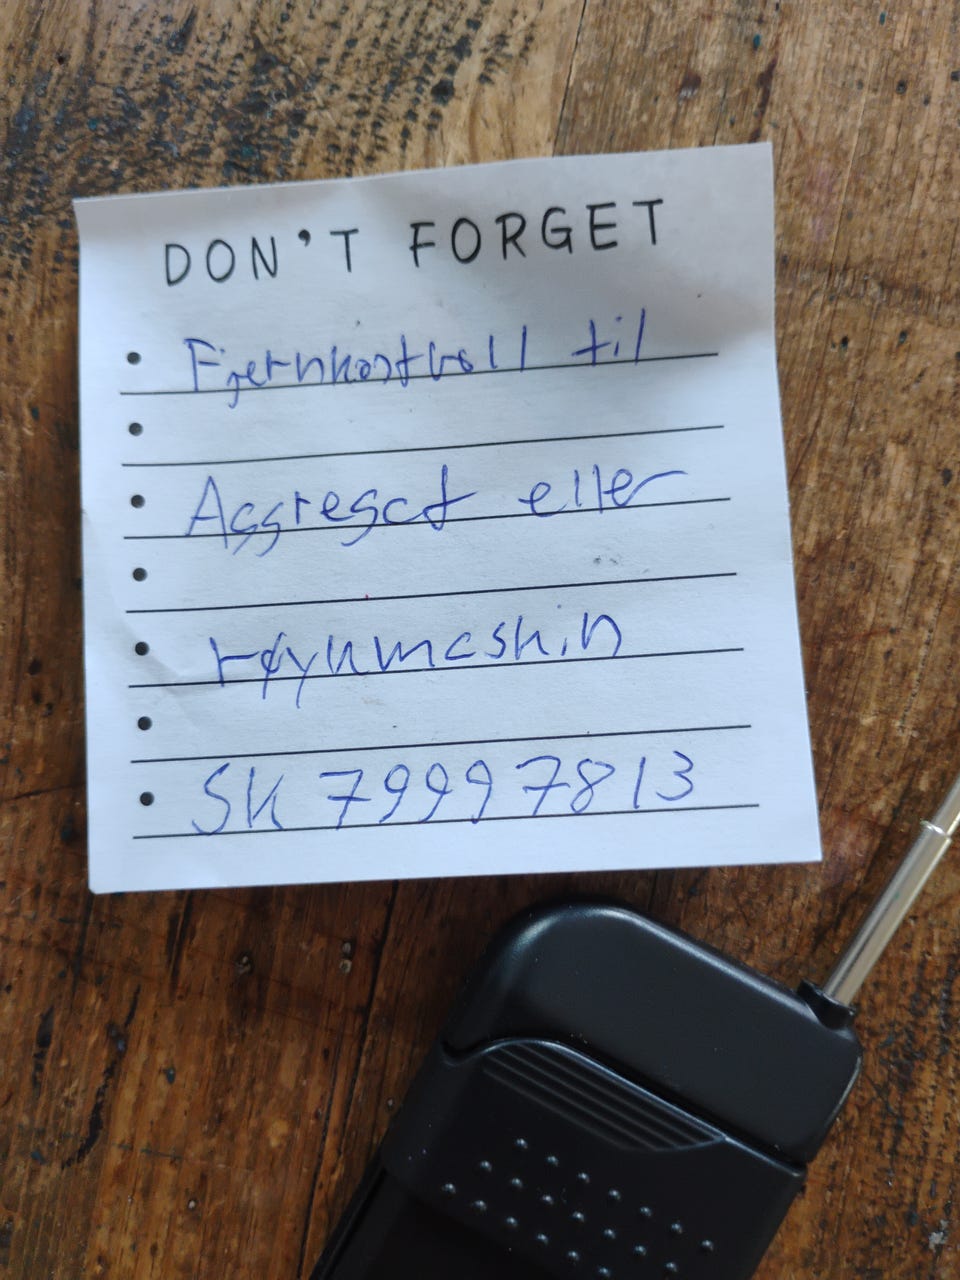 DON'T FORGET
Fjernkontroll til
Aggregat eller
røykmaskin
SK 79997813